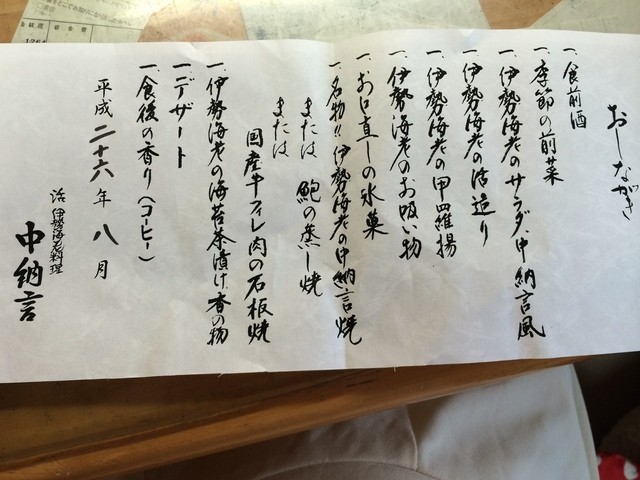 おしながき
一、食前酒
一、季節の前菜
一、伊勢海老のサラダ、中納言風
一、伊勢海老の活造り
一、伊勢海老の甲羅揚
一、伊勢海老のお吸い物
一、お口直しの氷菓
一、名物!!伊勢海老の中納言焼
または 鮑の蒸し焼
または
国産牛フィレ肉の石板焼
一、伊勢海老の海苔茶漬け、香の物
一、デザート
一、食後の香り(コーヒー)
平成二十六年八月
活伊勢海老料理
中納言